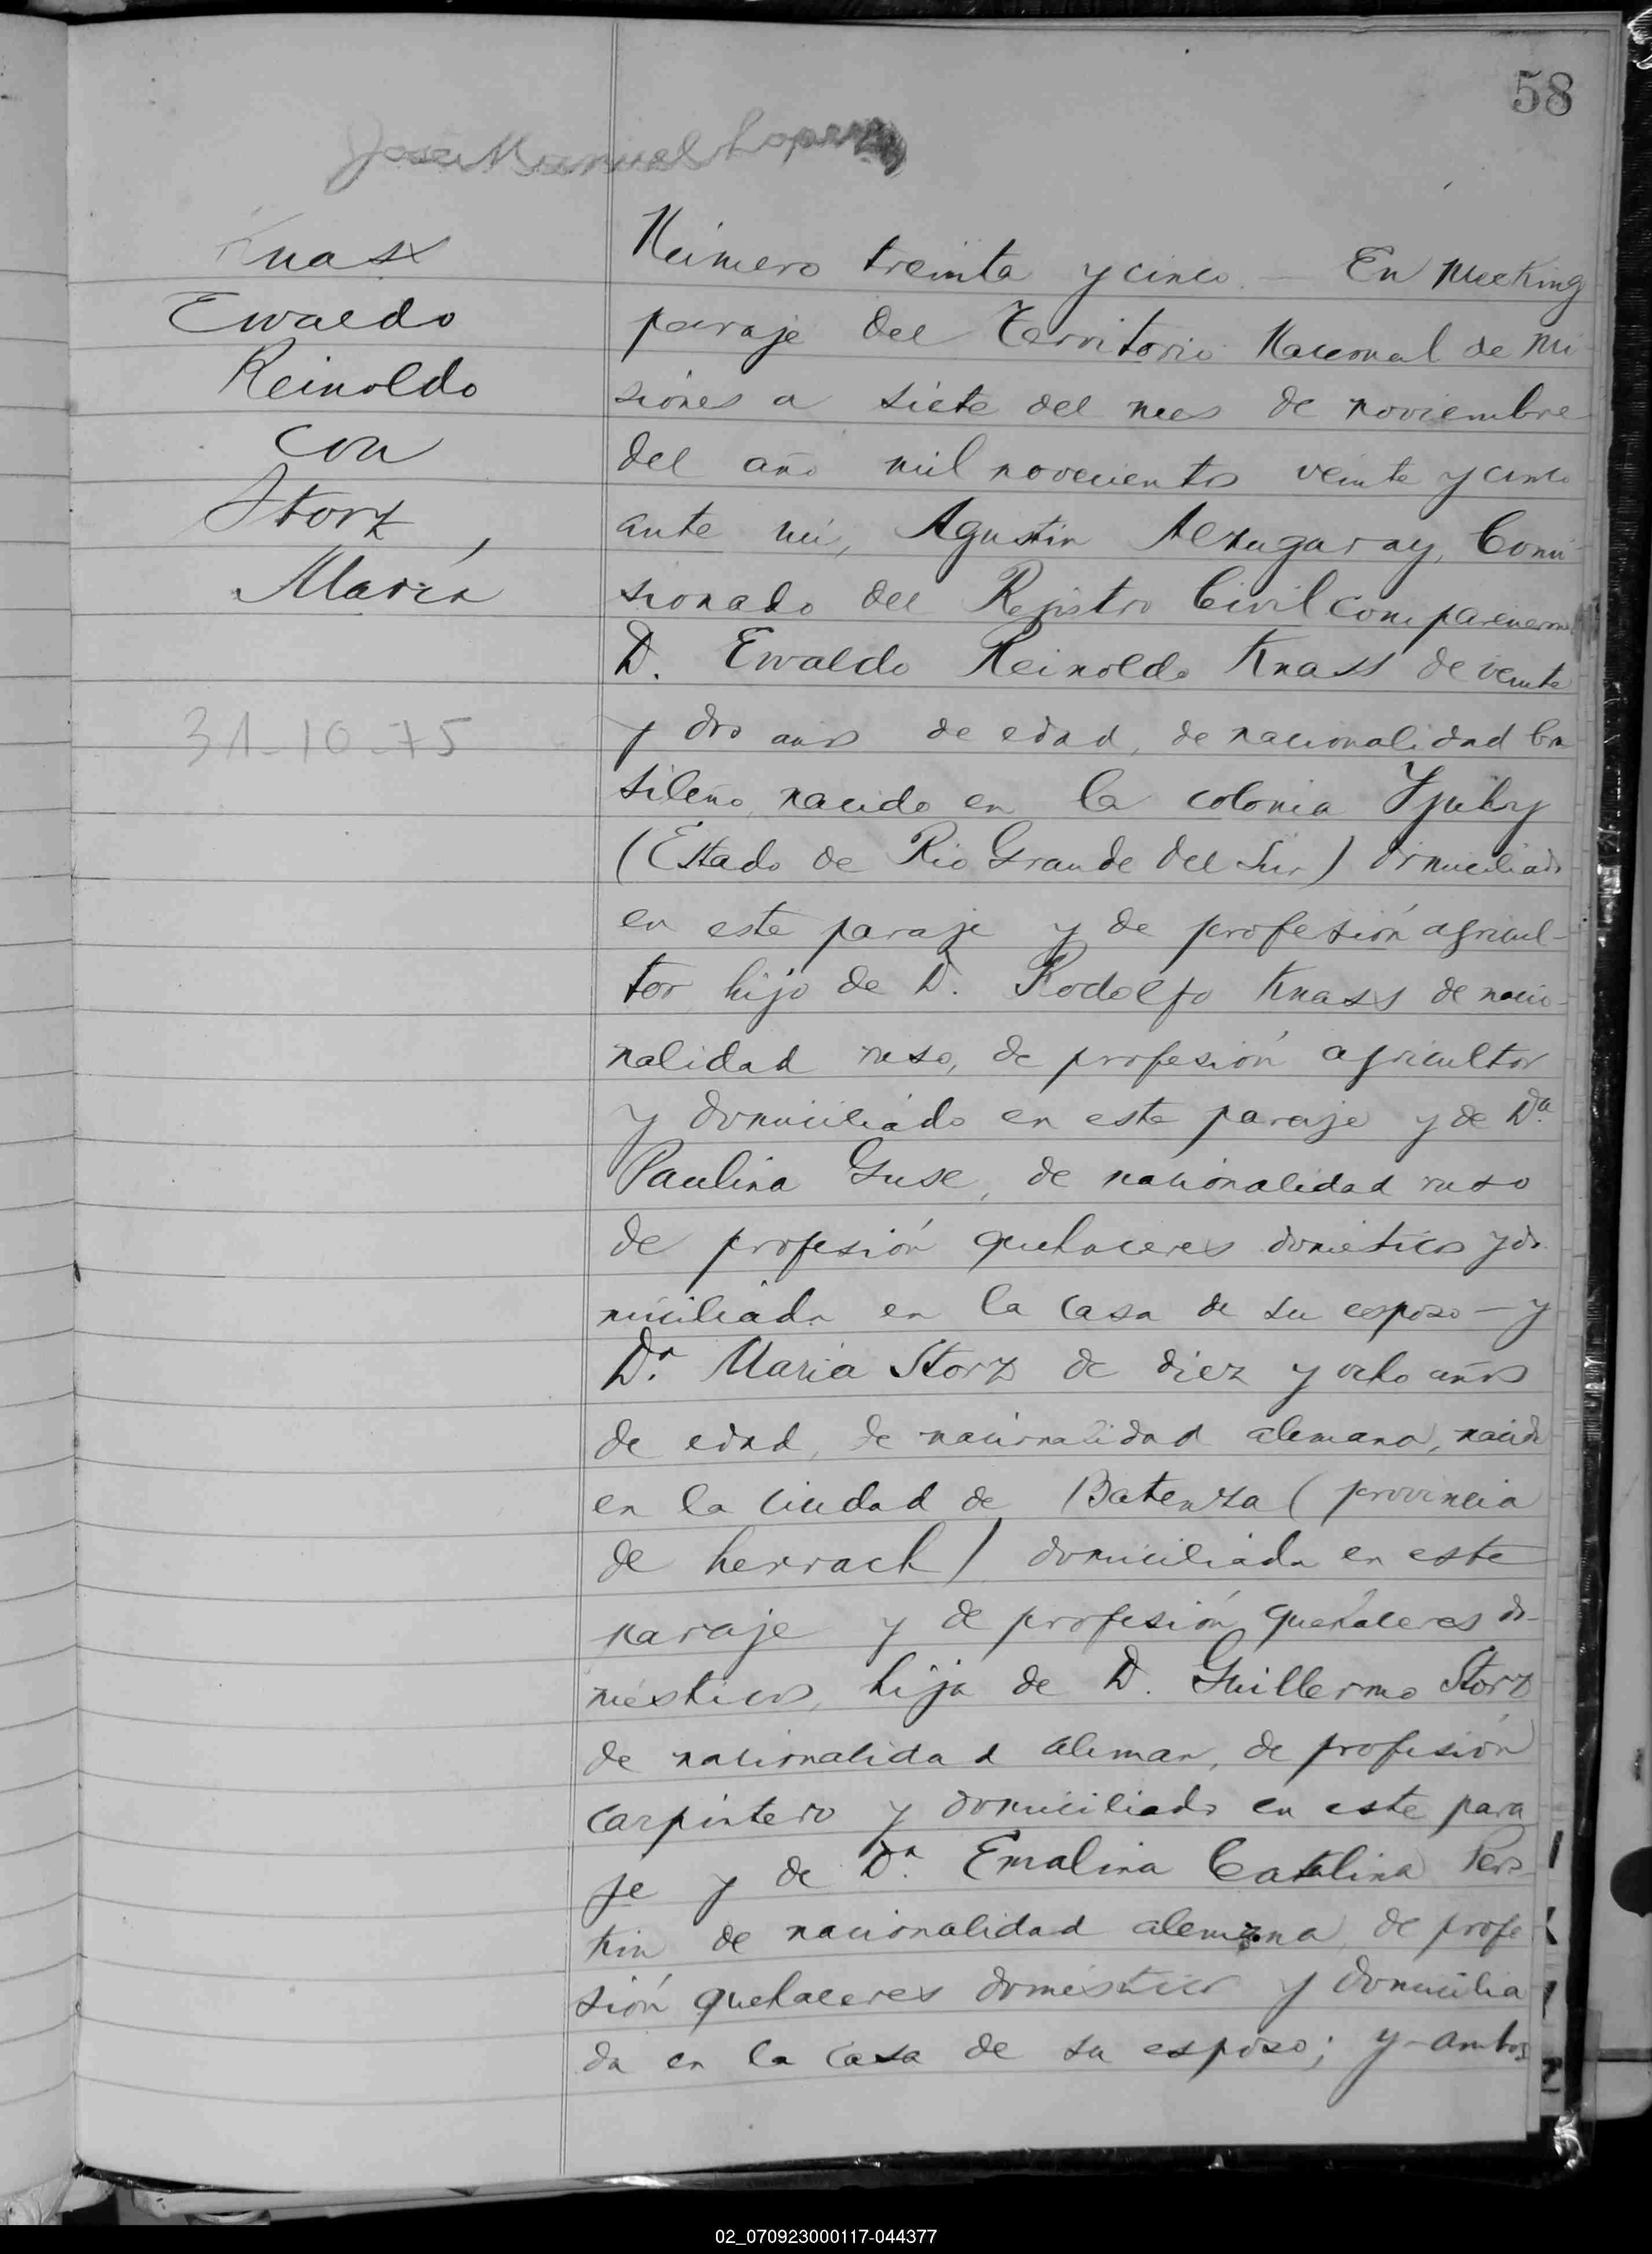 58
José Manuel Lopez
Knass
Ewaldo
Reinoldo
con
Storz,
María
31-10-75
Número treinta y cinco. — En Mecking
paraje del Territorio Nacional de Mi-
siones a siete del mes de noviembre
del año mil novecientos veinte y cinco
ante mí, Agustin Comi-
sionado del Registro Civil comparecieron
D. Ewaldo Reinoldo Knass de veinte
y dos años de edad, de nacionalidad bra
sileño, nacido en la colonia Yjuhy
(Estado de Rio Grande del Sur) domiciliado
en este paraje y de profesión agricul-
tor, hijo de D. Rodolfo Knass de nacio-
nalidad ruso, de profesión agricultor
y domiciliado en este paraje y de Dª
Paulina Guse, de nacionalidad ruso
de profesión quehaceres domésticos y do
miciliada en la casa de su esposo — y
Dª Maria Storz de diez y ocho años
de edad, de nacionalidad alemana, nacida
en la ciudad de Batenza (provincia
de herrach) domiciliada en este
paraje y de profesión quehaceres do-
mésticos, hija de D. Guillermo Storz
de nacionalidad aleman, de profesión
carpintero y domiciliado en este para
je y de Dª Emalina Catalina
de nacionalidad alemana, de profe
sión quehaceres domésticos y domicilia
da en la casa de su esposo; y ambos
02_070923000117-044377